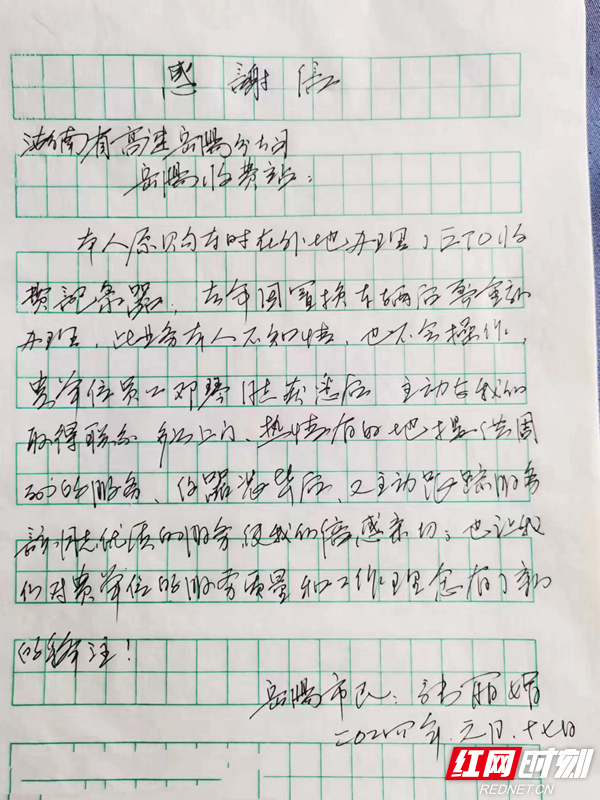 感謝信
湖南省高速岳陽分公司
岳陽收费站：
本人原购车时在外地办理了ETC收
费記录器，去年因置换车辆后要重新
办理，此业务本人不知情，也不会操作，
贵单位员工邓琴 获悉后 主动与我们
取得联系 多次上门、热情 的地提供周
到的服务、仪器装毕后，又主动跟踪服务
該同志优质的服务使我们倍感亲切；也让我
们对贵单位的服务质量和工作理念有了新
的 注！
岳陽市民：
二〇二四年.元月.十七日
红网时刻
REDNET.CN